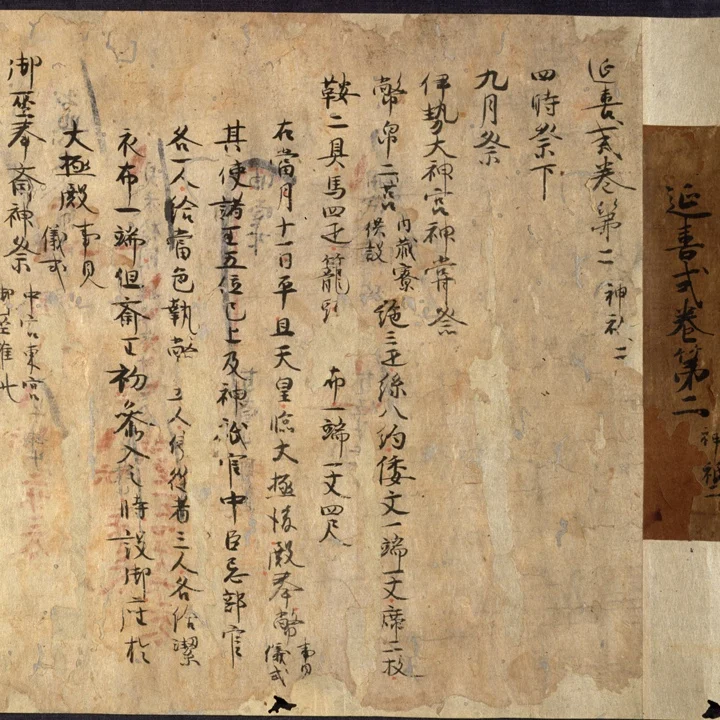 延喜式巻第二 神祇二
延喜式巻第二 神祇二
四時祭下
九月祭
伊勢大神宮神嘗祭
幣帛二 内蔵寮供設 絁三疋絲八約倭文一端一丈席二枚
鞍二具馬四疋籠頭 布一端一丈四尺
右當月十一日平旦天皇臨大極後殿奉幣 事見儀式
其使諸王五位已上及神祇官中臣忌部官
各一人給當色執幣 三人各給潔
衣布一端但斎王初参入之時設御座於
大極殿 事見儀式
御座奉斎神祭 中宮東宮